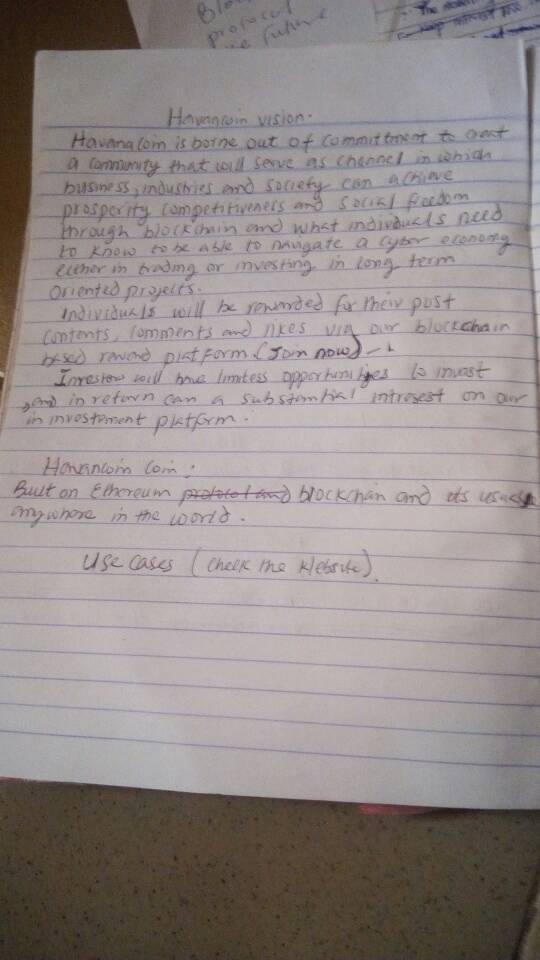 Blo
protocol
he future
Havancoin vision.
Havanacoin is borne out of committment to creat
a community that will serve as channel in which
business, industries and society can achieve
prosperity competitiveness and social freedom
through blockchain and what individuals need
to know to be able to navigate a cyber economy
either in trading or investing in long term
oriented projects.
Individuals will be rewarded for their post
contents, comments and likes via our blockchain
based reward platform (Join now)
Investors will have limitess opportunities to invest
and in return can a substantial introsest on our
in investement platform.
Havancoin coin:
Built on Ethereum protocol and blockchain and its
anywhere in the world.
Use cases (check the Website).